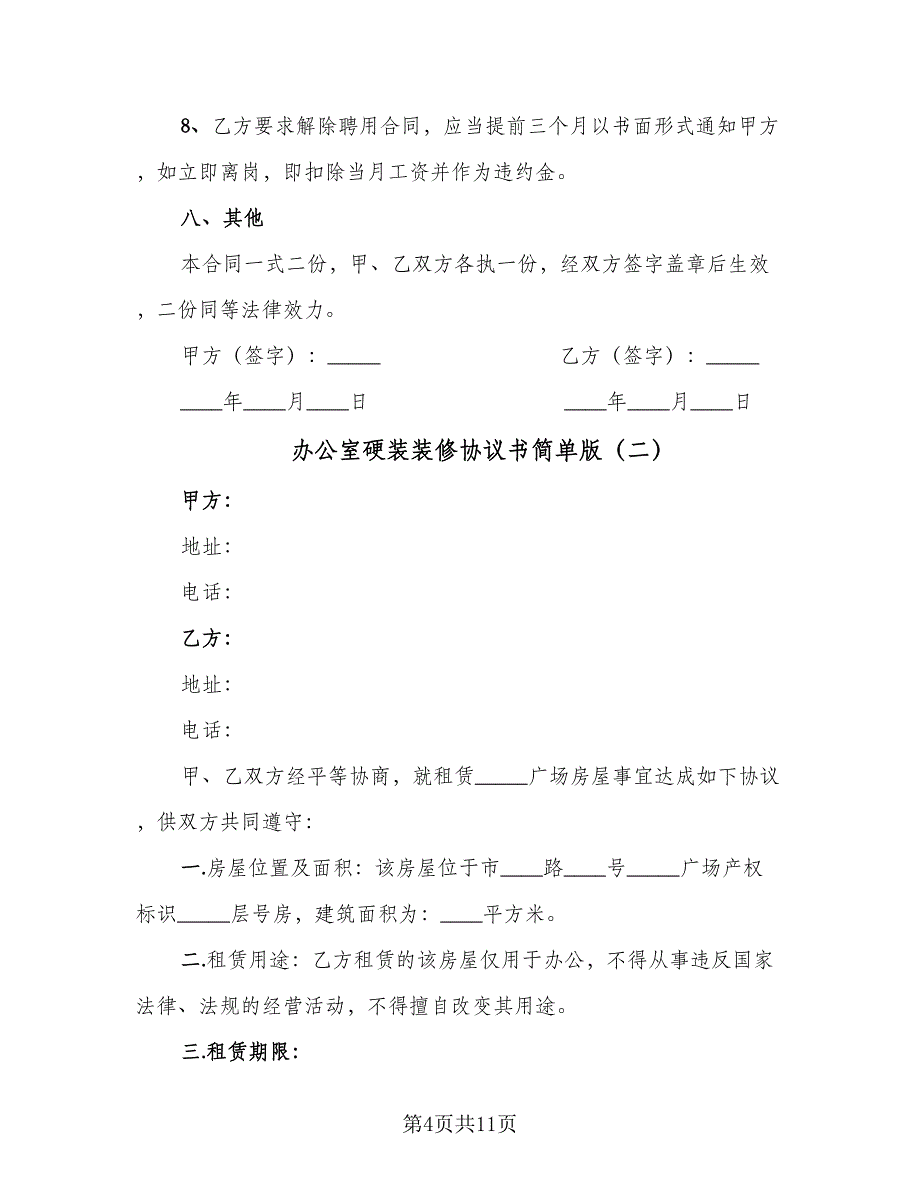 8、乙方要求解除聘用合同，应当提前三个月以书面形式通知甲方
，如立即离岗，即扣除当月工资并作为违约金。
八、其他
本合同一式二份，甲、乙双方各执一份，经双方签字盖章后生效
，二份同等法律效力。
甲方（签字）：_____ 乙方（签字）：_____
____年____月____日 ____年____月____日
办公室硬装装修协议书简单版（二）
甲方：
地址：
电话：
乙方：
地址：
电话：
甲、乙双方经平等协商，就租赁_____广场房屋事宜达成如下协议
，供双方共同遵守：
一.房屋位置及面积：该房屋位于市____路____号_____广场产权
标识_____层号房，建筑面积为：____平方米。
二.租赁用途：乙方租赁的该房屋仅用于办公，不得从事违反国家
法律、法规的经营活动，不得擅自改变其用途。
三.租赁期限：
第4页共11页